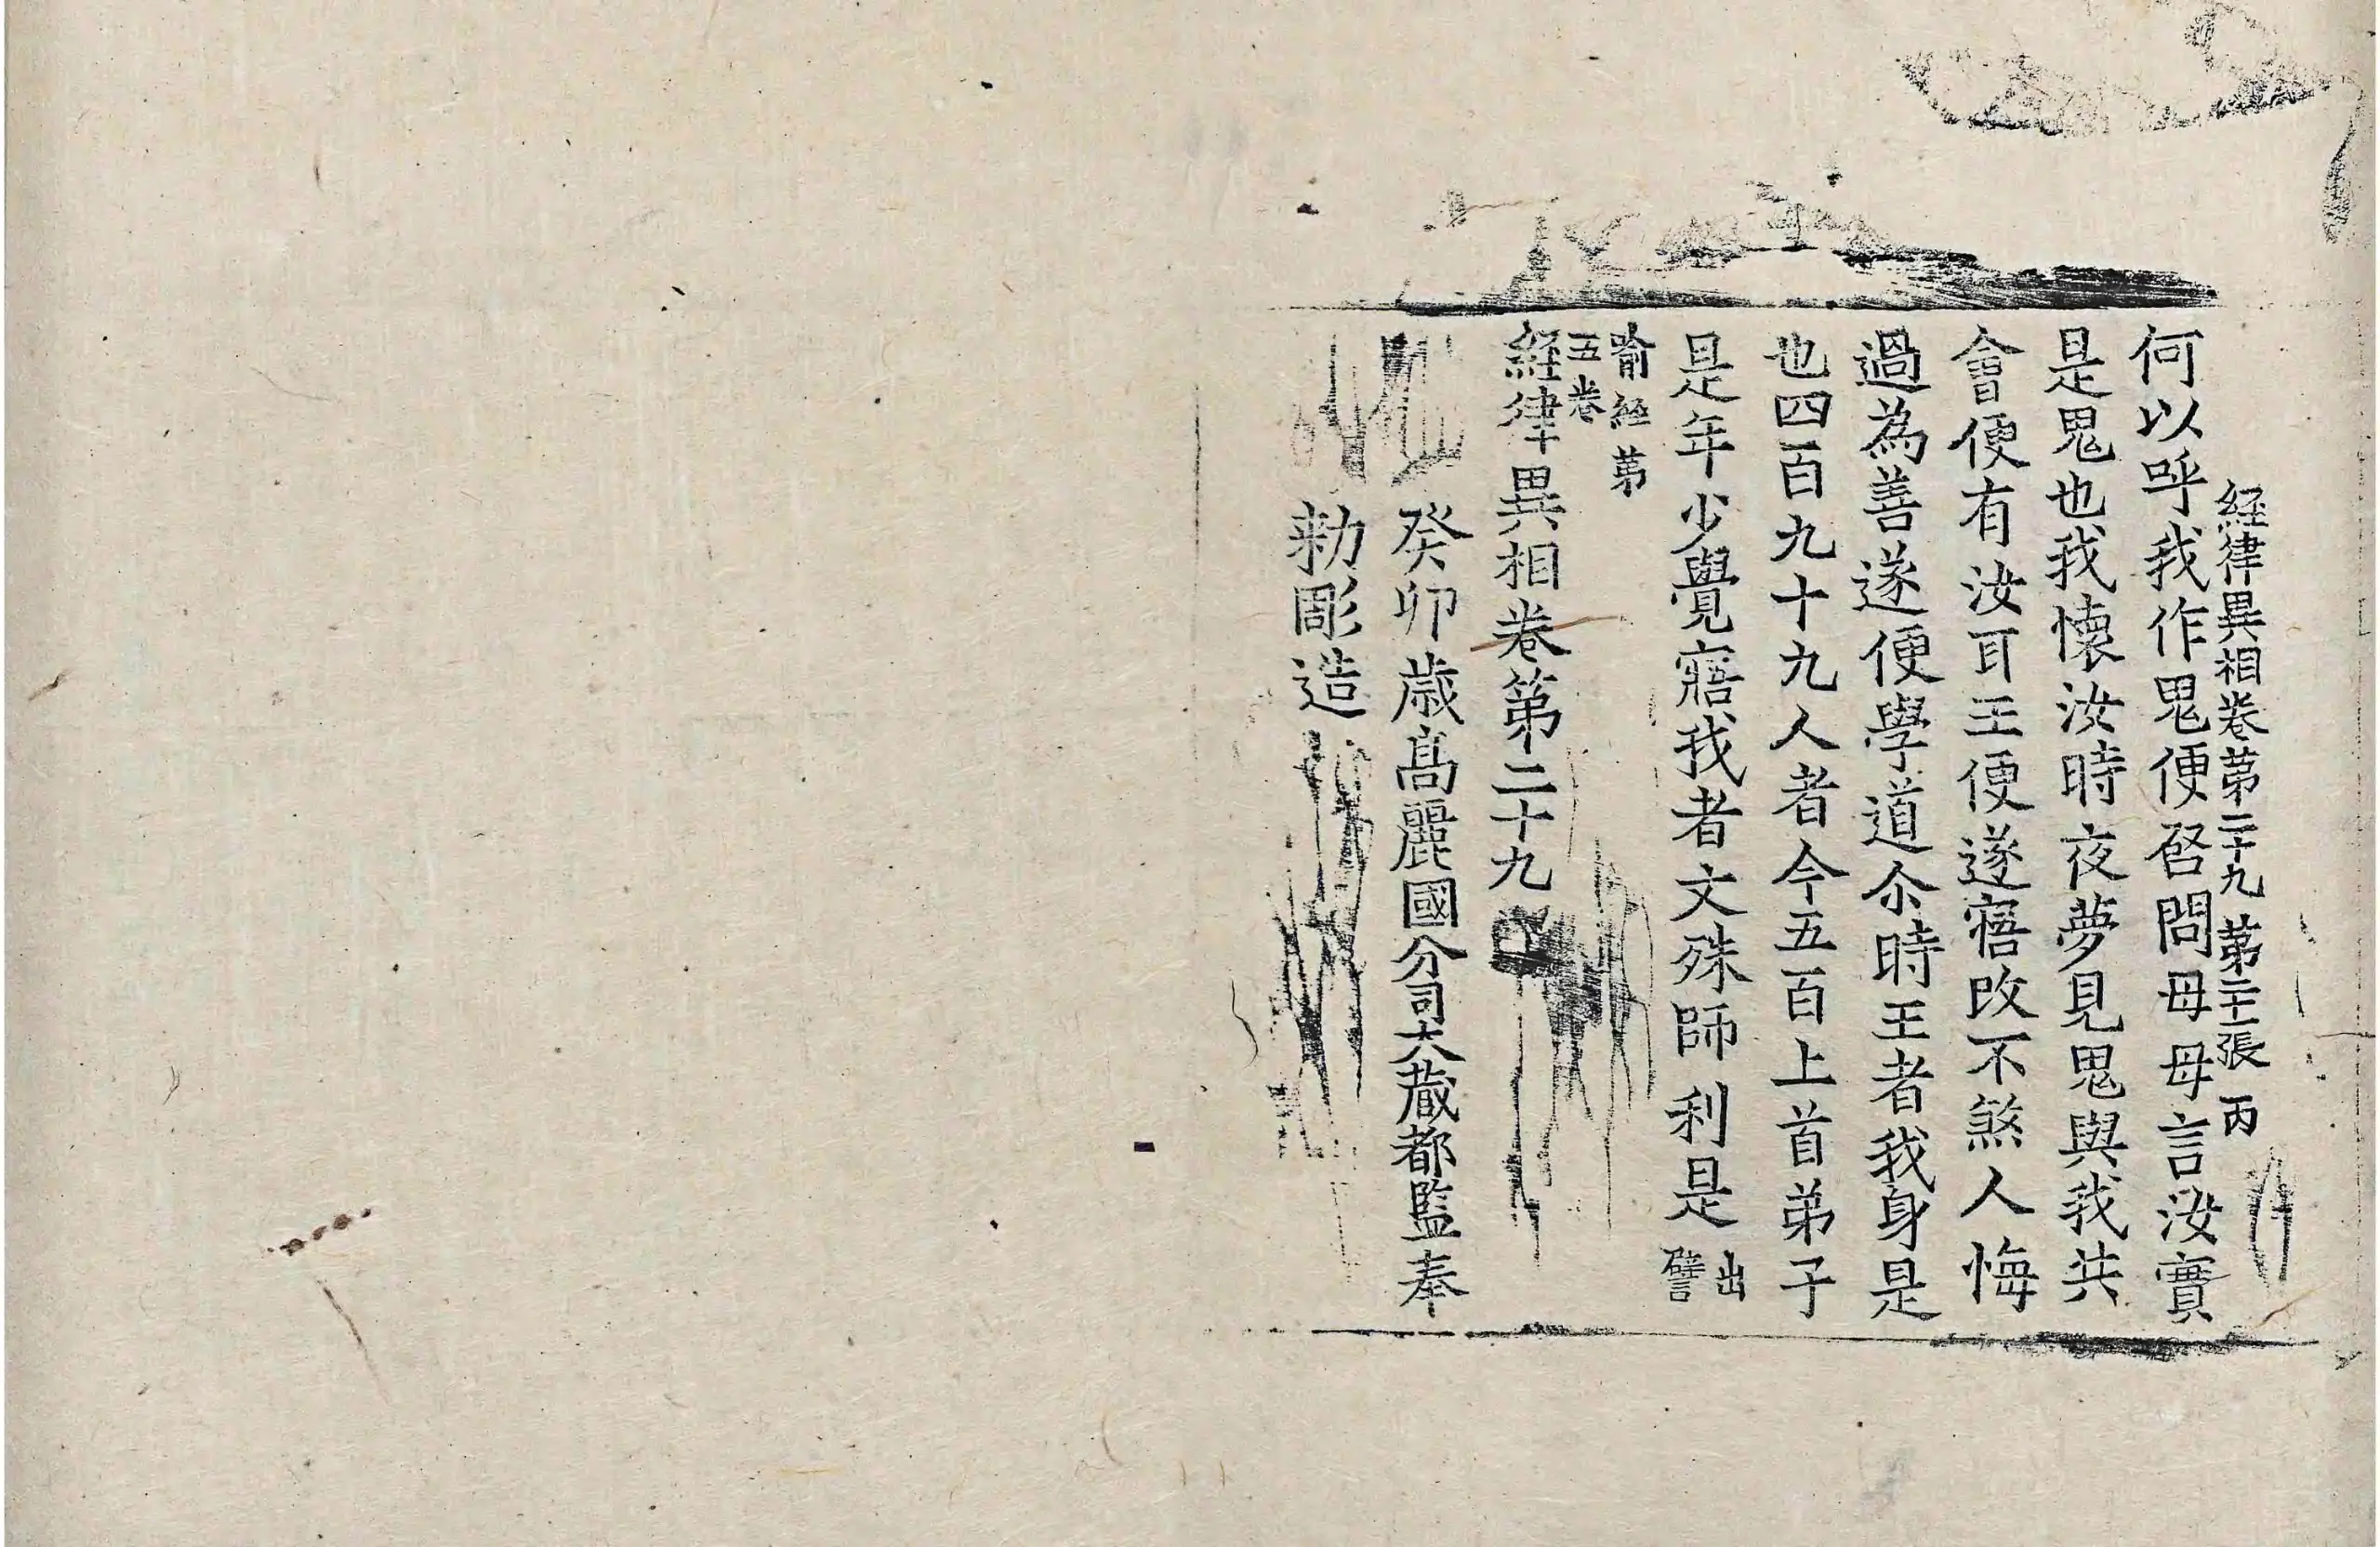 経律異相卷第二十九 第二十二張 丙
何以呼我作鬼便啓問母母言汝實
是鬼也我懷汝時夜夢見鬼與我共
會便有汝耳王便遂寤改不煞人悔
過為善遂便學道尒時王者我身是
也四百九十九人者今五百上首弟子
是年少覺寤我者文殊師利是出譬
喻経第
五卷
経律異相卷第二十九
癸卯歲髙麗國分司大藏都監奉
勑彫造